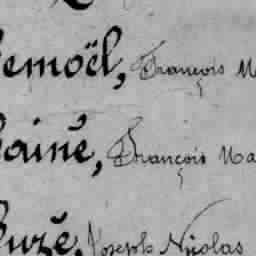 emoël, François
ainé, François
uzé, Joseph Nicolas